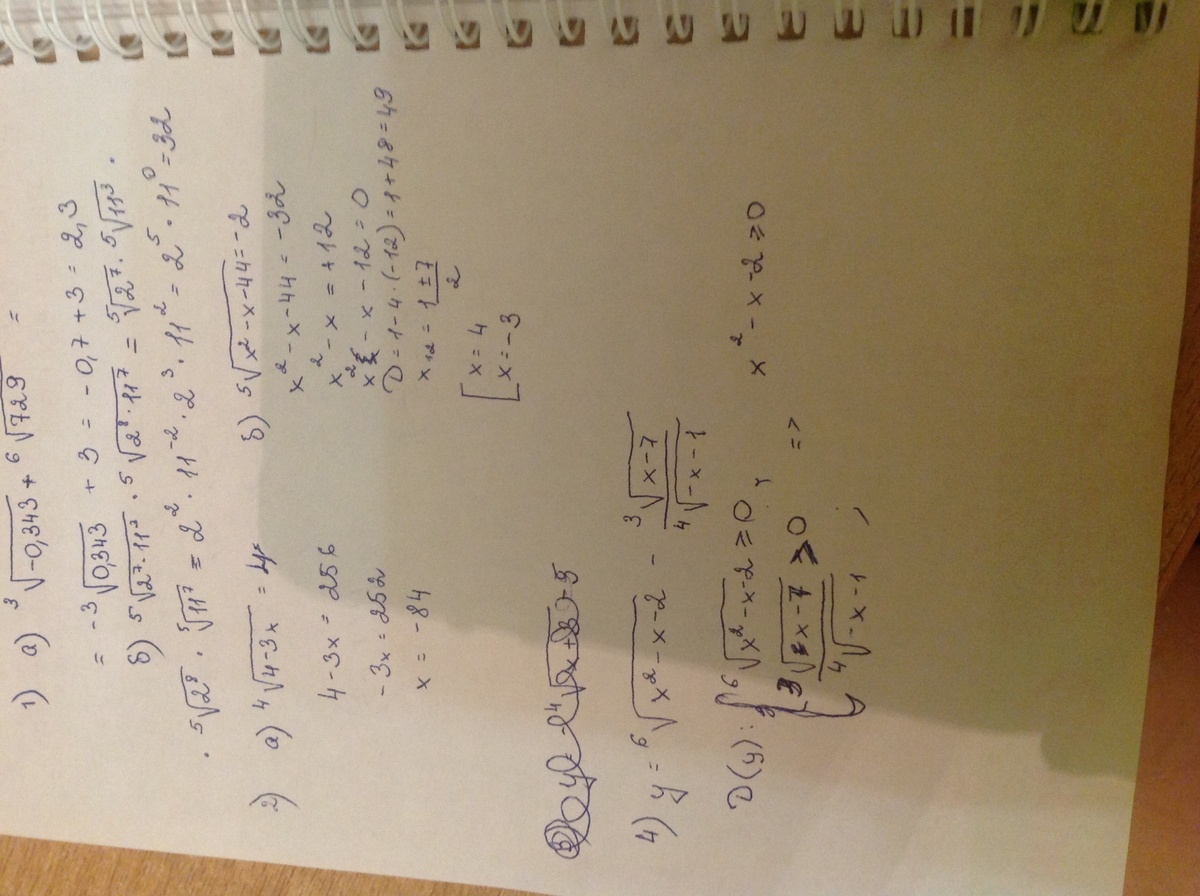 1) а) ³√-0,343 + ⁶√729 =
= -³√0,343 + 3 = -0,7 + 3 = 2,3
б) ⁵√2⁷·11³ · ⁵√2⁸·11⁷ = ⁵√2⁷ · ⁵√11³ ·
· ⁵√2⁸ · ⁵√11⁷ = 2² · 11⁻² · 2³ · 11² = 2⁵ · 11⁰ = 32
2) а) ⁴√4-3x = 4
4-3x = 256
-3x = 252
x = -84
б) ⁵√x²-x-44 = -2
x²-x-44 = -32
x²-x = +12
x²-x-12=0
D=1-4·(-12)=1+48=49
x₁₂ = 1±7/2
[x = 4
[x = -3
4) y = ⁶√x²-x-2 - ³√x-7 / ⁴√-x-1
D(y): { ⁶√x²-x-2 ≥ 0,
³√x-7 / ⁴√-x-1 ≥ 0 ; => x²-x-2≥0